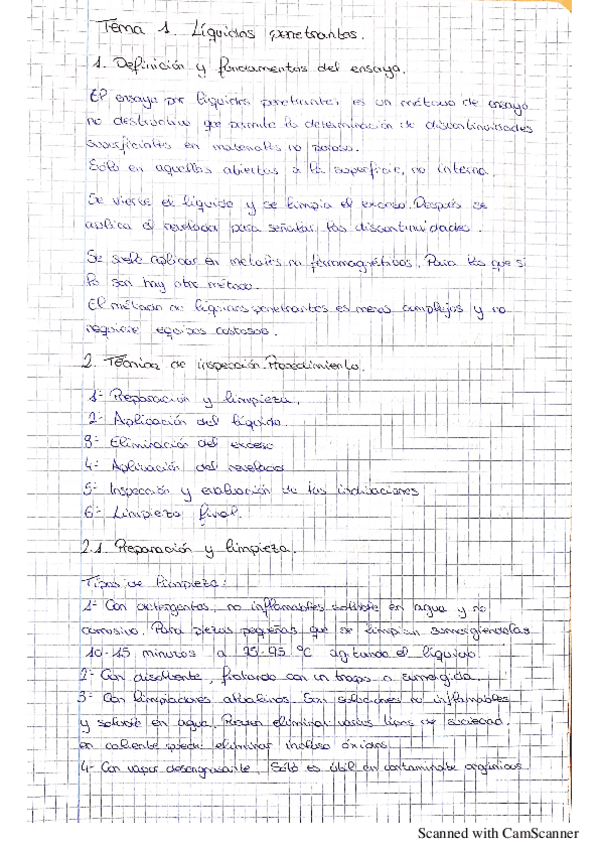 Tema 1. Líquidos penetrantes.
1. Definición y fundamentos del ensayo.
El ensayo por líquidos penetrantes es un método de ensayo
no destructivo que permite la determinación de discontinuidades
superficiales en materiales no porosos.
Sólo en aquellas abiertas a la superficie, no interna.
Se vierte el líquido y se limpia el exceso. Después se
aplica el revelador para señalar las discontinuidades.
Se suele aplicar en metales no ferromagnéticos. Para los que sí
lo son hay otro método.
El método de líquidos penetrantes es menos complejos y no
requiere equipos costosos.
2. Técnica de inspección. Procedimiento.
1- Preparación y limpieza.
2- Aplicación del líquido
3- Eliminación del exceso
4- Aplicación del revelador
5- Inspección y evaluación de las indicaciones
6- Limpieza final.
2.1. Preparación y limpieza.
Tipos de limpieza:
1- Con detergentes, no inflamables soluble en agua y no
corrosivo. Para piezas pequeñas que se limpian sumergiéndolas
10-15 minutos a 75-95 °C agitando el líquido.
2- Con disolvente, frotando con un trapo o sumergida.
3- Con limpiadores alcalinos. Son soluciones no inflamables
y soluble en agua. Pueden eliminar varios tipos de suciedad.
en caliente puede eliminar incluso óxidos
4- Con vapor desengrasante. Sólo es útil en contaminante orgánicos
Scanned with CamScanner